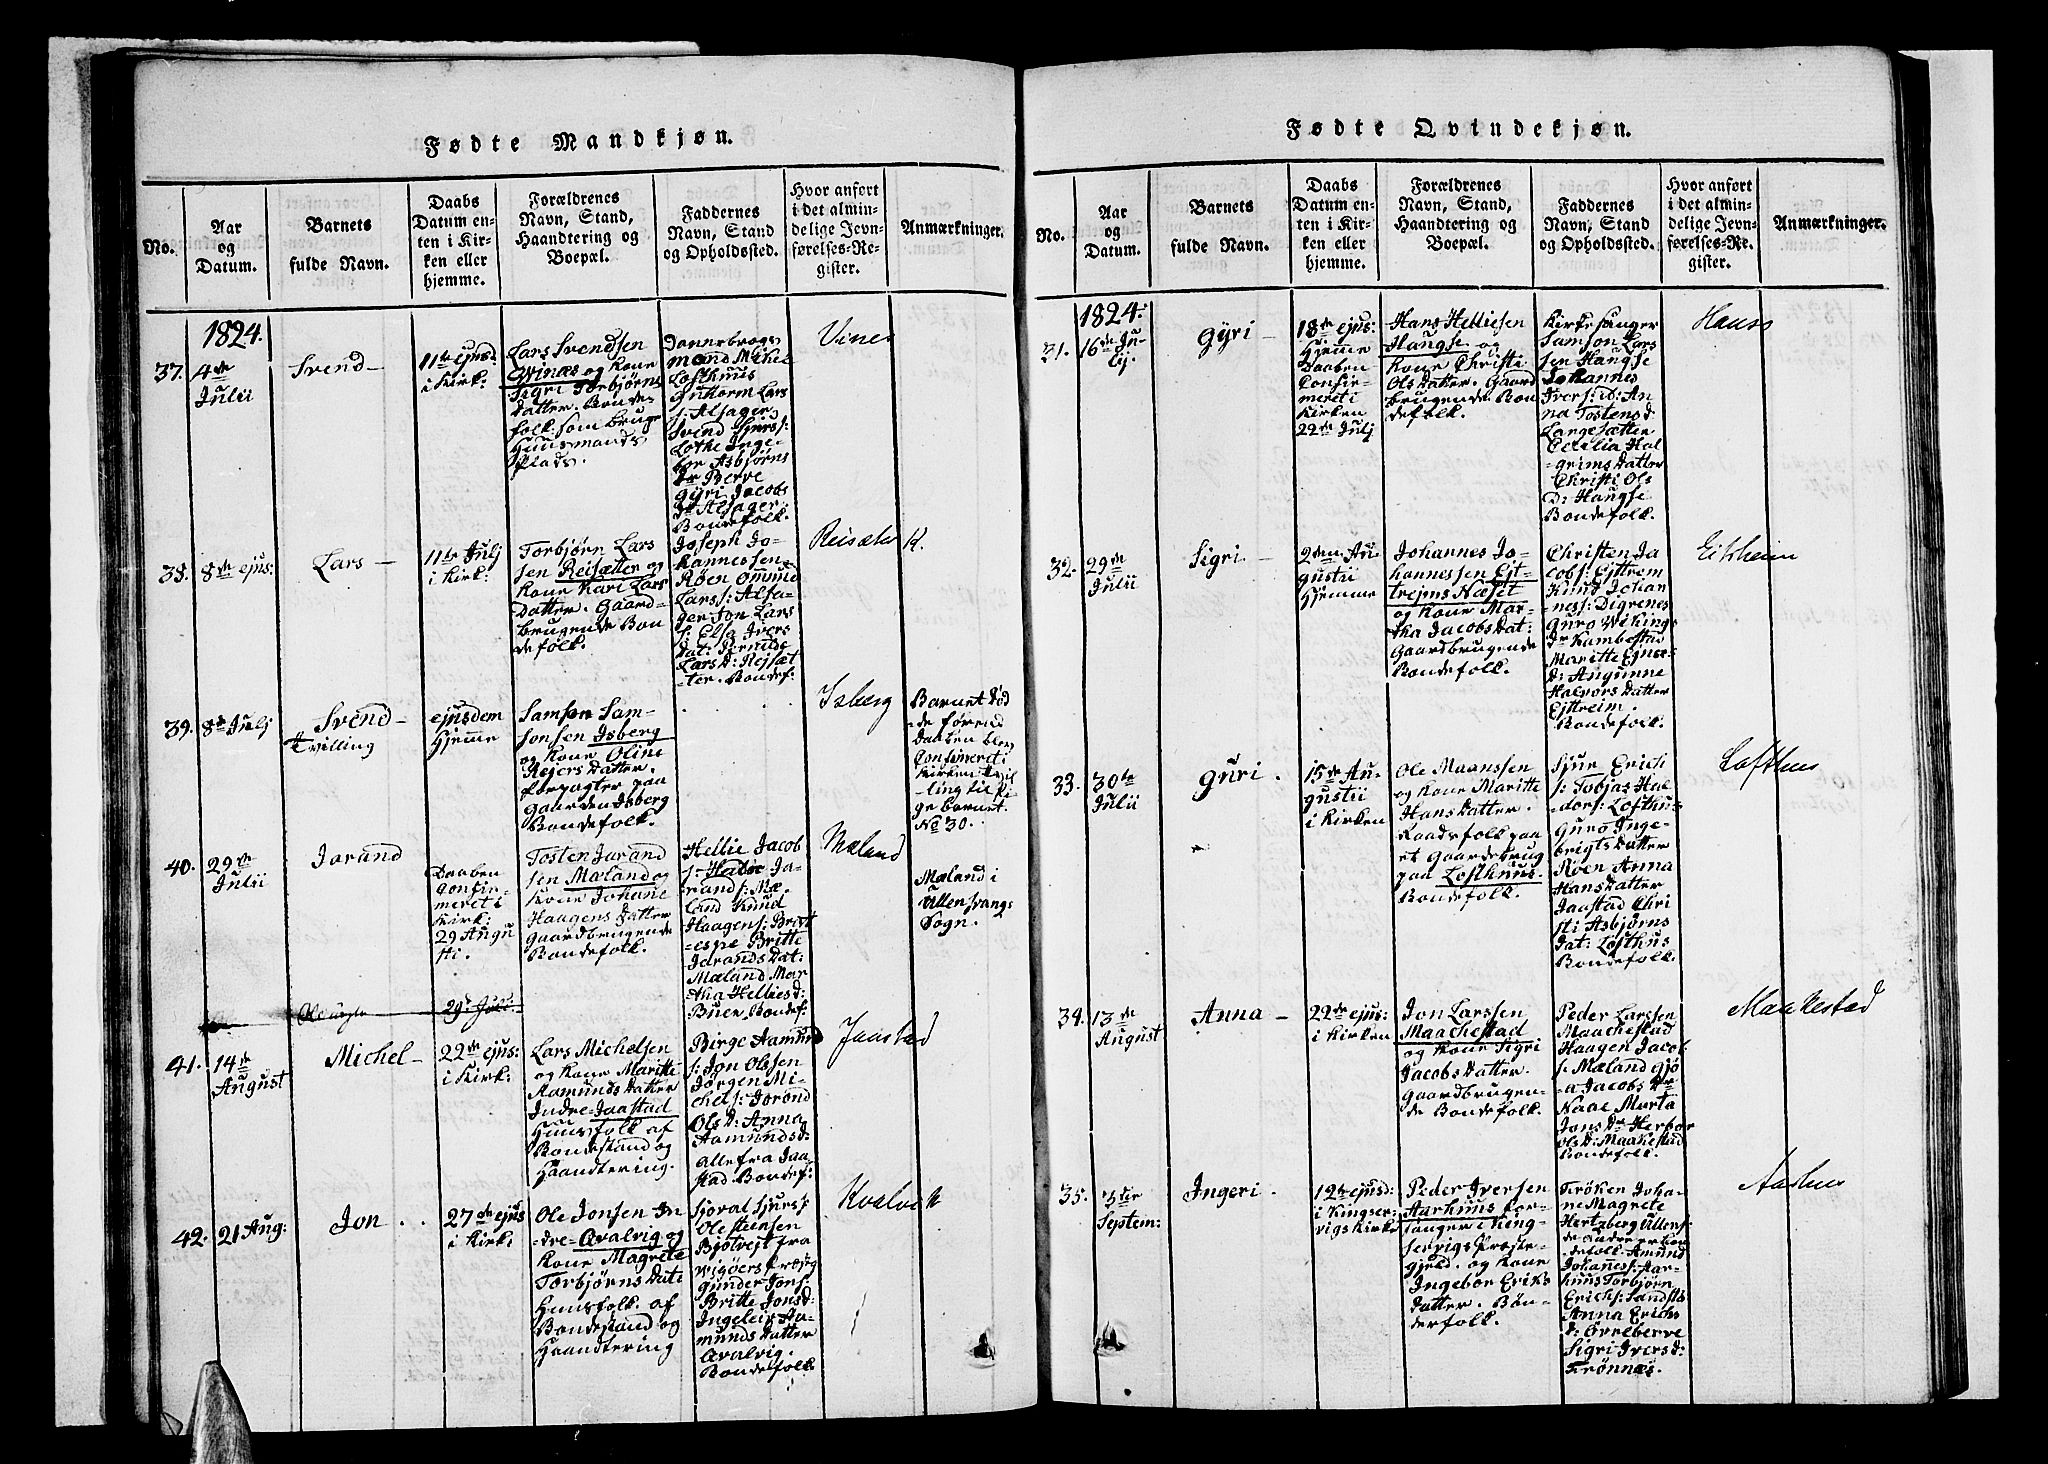 Fødte Mandkjøn.
No.
Aar
og
Datum.
Barnets
fulde Navn.
Daabs
Datum en-
ten i Kir-
ken eller
hjemme.
Forældrenes
Navn, Stand,
Haandtering og
Boepæl.
Faddernes
Navn, Stand
og Opholdssted.
Hvor anført
i det almin-
delige Jevn-
førelses-Re-
gister.
Anmærkninger.
1824.
37.
4de
Julii
Svend
11te ejusd:
i Kirk:
Lars Svendsen
Winæs og Kone
Sigri Torbjørns
Datter. Bonde-
folk som bruge
Huusmands
Plads.
Dannebrogs
mand Mikel
Lofthuus
Guttorm Lars
s: Alsager
Svend Siurs:
Lothe Inge-
bor Asbjørns
Dr Berve
Gÿri Jacobs
Dr Alsager:
Bondefolk.
Vines
38.
8de ejus:
Lars
11te Julj
i Kirk:
Torbjørn Lars
sen Reisætter og
Kone Kari Lars
Datter. Gaard-
brugende Bon
defolk.
Joseph Jo-
hannessen
Røen Ommund
Larss: Alsa-
ger Jon Lars
s: Elsa Ivers
Dat:
Lars D: Rejsæt
-ter. Bondef:
Reisæter
K.
39.
8de Julj
Svend
Tvilling
ejusdem
Hjemme
Samson Sam-
sonsen Isberg
og Kone Oline
Rejers Datter.
Forpagter paa
Gaarden Isberg
Bondefolk.
Isberg
Barnet død
-de førend
Daaben blev
Confirmeret i
Kirken Tvil
-ling til Pi
ge Barnet
No 30.
40.
29de
Julii
Jorand
Daaben
Confir-
meret i
Kirk:
29 Augu
sti.
Tosten Jorand
sen Mæland og
Kone Johane
Haagens Datter
Gaardbrugende
Bondefolk.
Hellie Jacob
s: Hadse Jo-
rands: Mæ-
land Knud
Haagens: Brist
-espe Britte
Jorands Dat:
Mæland Mar
tha Hellies d:
Buer, Bondef:
Mæland
Mæland i
Ullensvangs
Sogn.
29de Julii
41.
14de
August
Michel
22de ejus:
i Kirk:
Lars Michelsen
og Kone Maritte
Aamunds Datter
Indre-Jaastad
Huusfolk af
Bondestand og
Haandtering.
Birge Aamund
s: Jon Olssen
Jørgen Mi-
chels: Jorond
Ols D: Anna
Aamunds d:
alle fra Jaa
stad Bondef:
Jaastad
42.
21 Aug:
Jon
27de ejus
i Kirk:
Ole Jonsen In
dre-Qvalvig og
Kone Magrete
Torbjørns Datt
Huusfolk af
Bondestand og
Haandtering
Sjoval Sjurs:
Ole Steensen
Bjotvejt fra
Wigøers Præstg
Gunder Jons:
Britte Jons D:
Ingeleif Aa-
munds Datter
Qvalvig.
Bondefolk
Kvalvik
Fødte Qvindekjøn.
No.
Aar
og
Datum.
Barnets
fulde Navn.
Daabs
Datum en-
ten i Kir-
ken eller
hjemme.
Forældrenes
Navn, Stand,
Haandtering og
Boepæl.
Faddernes
Navn, Stand
og Opholdssted.
Hvor anført
i det almin-
delige Jevn-
førelses-Re-
gister.
Anmærkninger.
1824.
31.
16de Ju-
lij
Gÿri
18de ejus:
Hjemme
Daaben
Confir-
meret i
Kirken
22de Julj
Hans Helliesen
Haugse og
Kone Christi
Ols Datter. Gaard
brugende Bon
defolk.
Kirkesanger
Samson Lars
sen Haugse
Johannes
Ivers: id: An
na Tostens d:
Langesætter
Cecilia Hal
-grims Datter
Christi Ols
D: Haugse
Bondefolk.
Hauss
32.
29de
Julii
Sigri
2den Au-
gustii
Hjemme
Johannes Jo-
hannessen Ejt-
trejms Næset
og Kone Mar-
tha Jacobs Dat:
Gaardbrugende
Bondefolk.
Christen Ja
cobs: Ejttrem
Knud Johan
-nes: Digrenes
Guro Wikings
Dr Kambestad
Maritte Ejnce-
D: Angunne
Halvors Datter
Ejttreim.
Bondefolk.
Eitheim
33.
30te
Julii
Guri.
15de Au-
gustii
i Kirken
Ole Maanssen
og Kone Maritte
Hans Datter.
Raadsfolk paa
et Gaardebrug
paa Lofthuus
Bondefolk.
Sjur Erich
s: Tobjas Hal
dors: Lofthu-
Guro Inge-
brigts Datter
Røen Anna
Hans Datter
Jaastad Chri
sti Asbjørns
Dat: Lofthus
Bondefolk.
Lofthus
34.
13de
August
Anna
22de ejus:
i Kirken
Jon Larssen
Maachestad
og Kone Sigri
Jacobs Datter.
Gaardbrugen-
de Bondefolk.
Peder Larssen
Maachestad
Haagen Jacob
s: Mæland Gjø
-a Jacobs Dr
Naae Marta
Jons Dr Herbor
Ols D: Maakestad
Bondefolk.
Maakestad
35.
3der
Septem:
Ingeri.
12te ejusd:
i Kinser-
vigs Kirke
Peder Iversen
Aarhuus For-
sanger i King-
servigs Præste-
gjeld. og Kone
Ingebor Eriks
Datter. Bøn-
derfolk.
Frøken Joha-
ne Magrete
Hertzberg Ullens:
defolk. Amund
Johanes: Aar-
huus Torbjørn
Erichs: Sandstø
Anna Erichs
D: Qvelberve
Sigri Ivers d:
Trønnæs.
Aarhus